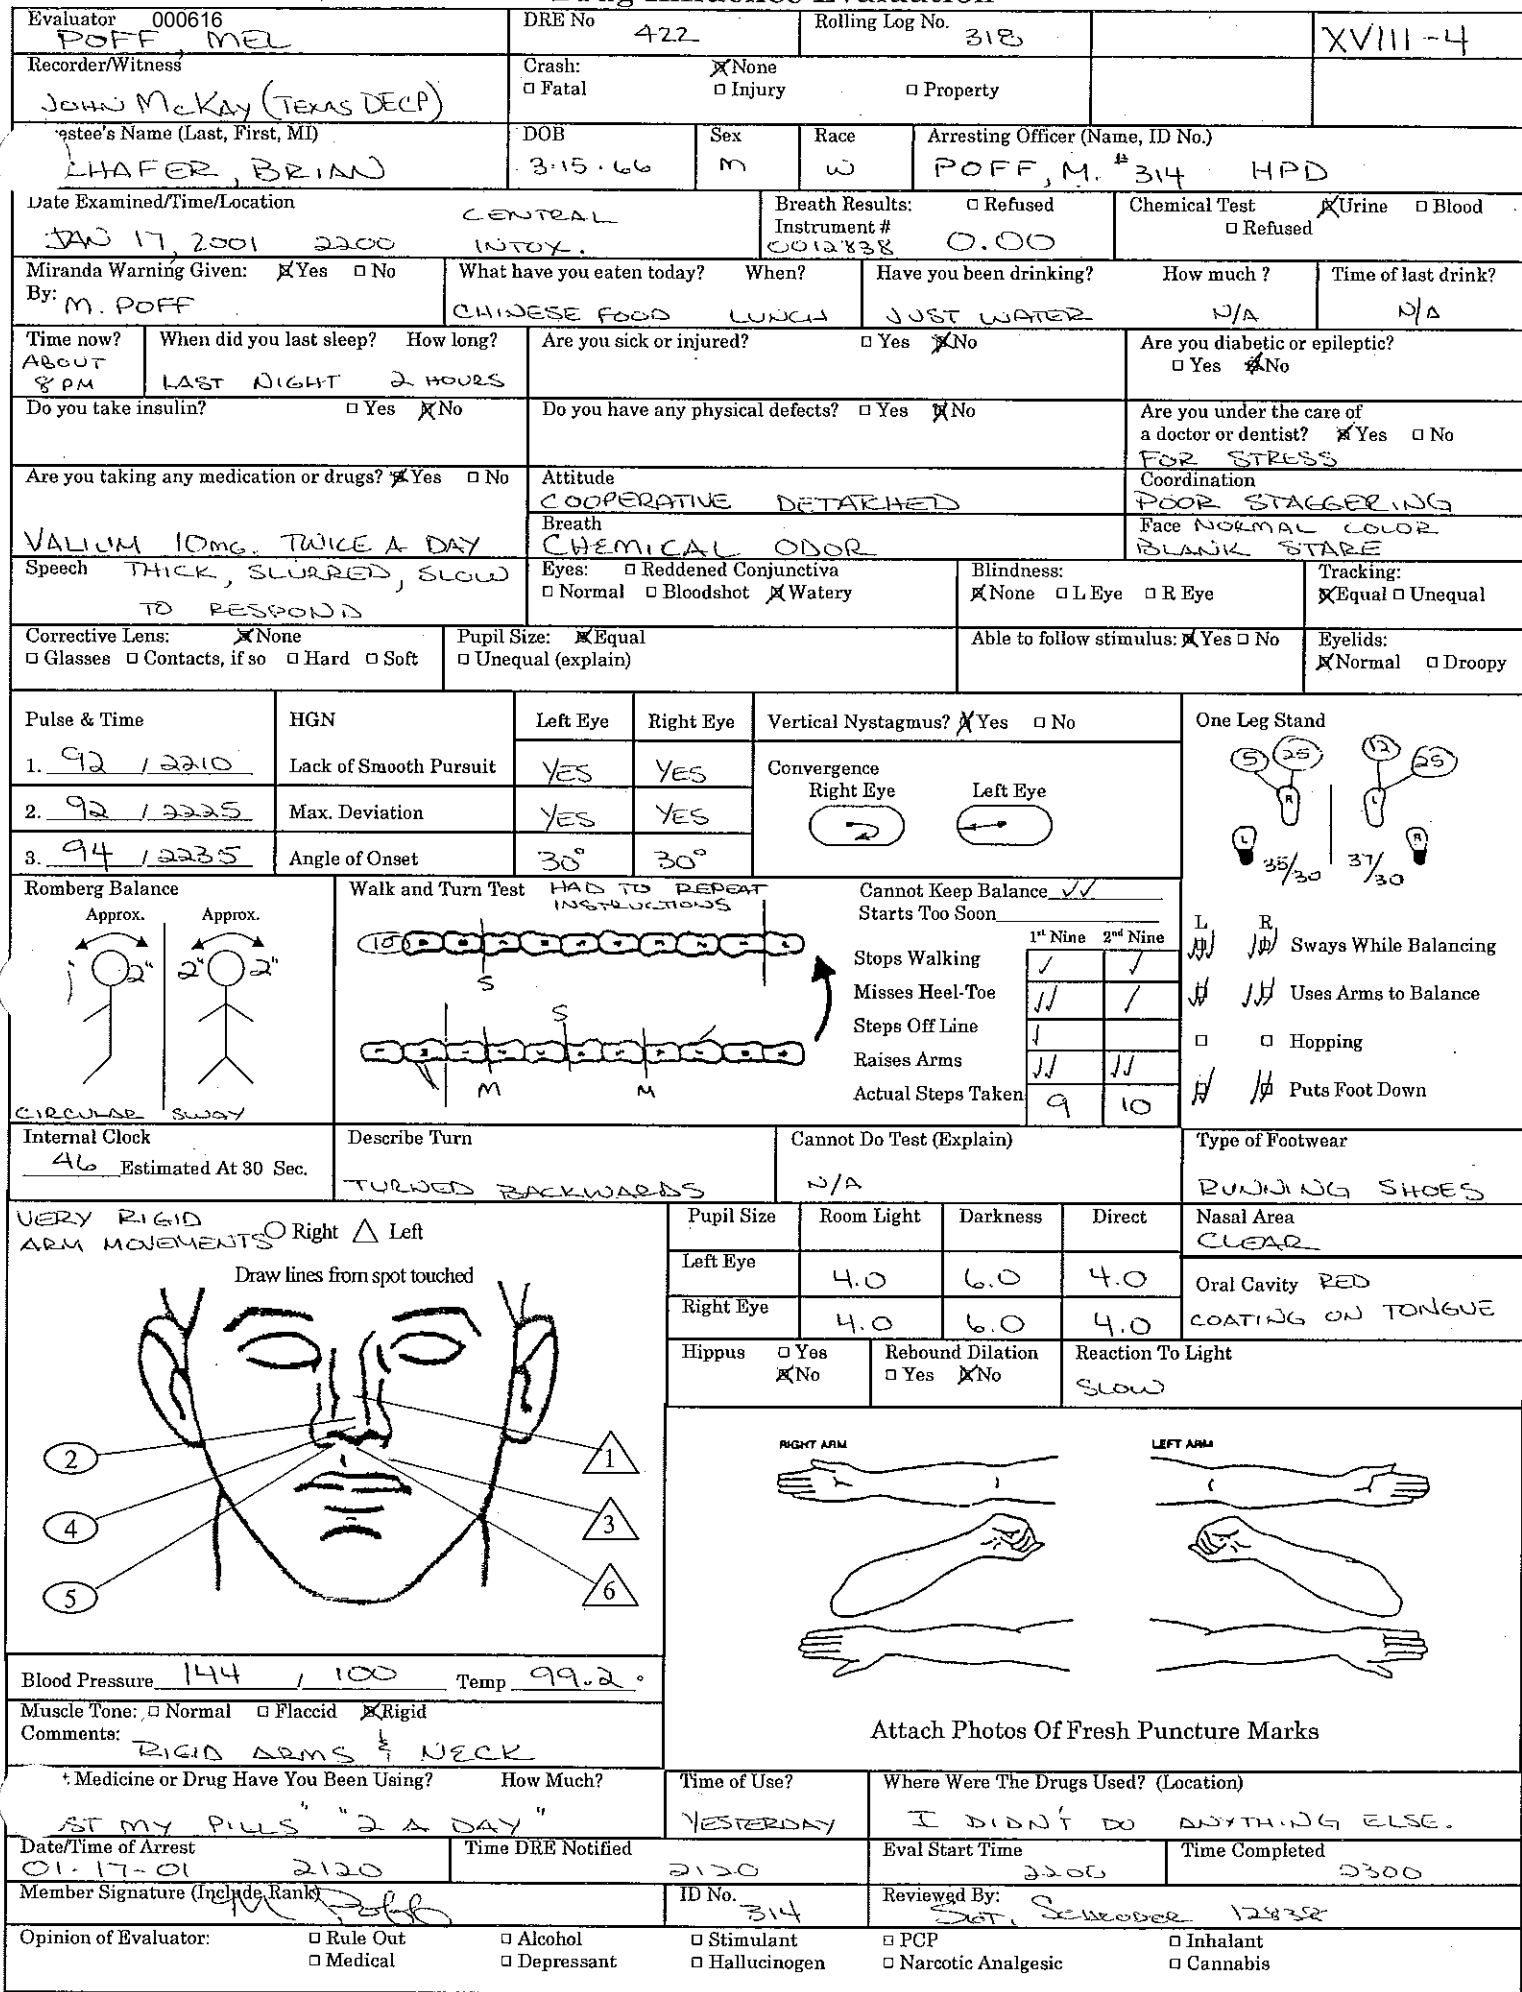 Evaluator 000616
POFF, MEL
DRE No
422
Rolling Log No.
318
XVIII-4
Recorder/Witness
JOHN McKAY (TEXAS DECP)
Crash: None
Fatal Injury Property
estee's Name (Last, First, MI)
CHAFER, BRIAN
DOB
3.15.66
Sex
M
Race
W
Arresting Officer (Name, ID No.)
POFF, M. #314 HPD
Date Examined/Time/Location
JAN 17, 2001 2200 CENTRAL
INTOX.
Breath Results: Refused
Instrument #
0012838 0.00
Chemical Test Urine Blood
Refused
Miranda Warning Given: Yes No
By: M. POFF
What have you eaten today? When?
CHINESE FOOD LUNCH
Have you been drinking? How much ?
JUST WATER N/A
Time of last drink?
N/A
Time now?
ABOUT
8 PM
When did you last sleep? How long?
LAST NIGHT 2 HOURS
Are you sick or injured? Yes No
Are you diabetic or epileptic?
Yes No
Do you take insulin? Yes No
Do you have any physical defects? Yes No
Are you under the care of
a doctor or dentist? Yes No
FOR STRESS
Are you taking any medication or drugs? Yes No
VALIUM 10MG. TWICE A DAY
Attitude
COOPERATIVE DETATCHED
Coordination
POOR STAGGERING
Breath
CHEMICAL ODOR
Face NORMAL COLOR
BLANK STARE
Speech THICK, SLURRED, SLOW
TO RESPOND
Eyes: Reddened Conjunctiva
Normal Bloodshot Watery
Blindness:
None L Eye R Eye
Tracking:
Equal Unequal
Corrective Lens: None
Glasses Contacts, if so Hard Soft
Pupil Size: Equal
Unequal (explain)
Able to follow stimulus: Yes No
Eyelids:
Normal Droopy
Pulse & Time
1. 92 / 2210
2. 92 / 2225
3. 94 / 2235
HGN Left Eye Right Eye
Lack of Smooth Pursuit YES YES
Max. Deviation YES YES
Angle of Onset 30° 30°
Vertical Nystagmus? Yes No
Convergence
Right Eye Left Eye
One Leg Stand
5 25 12 25
R L
L R
35/30 37/30
Romberg Balance
Approx. Approx.
1" 2" 2" 2"
CIRCULAR SWAY
Walk and Turn Test HAD TO REPEAT
INSTRUCTIONS
10
S
S
M M
Cannot Keep Balance
Starts Too Soon
1st Nine 2nd Nine
Stops Walking
Misses Heel-Toe
Steps Off Line
Raises Arms
Actual Steps Taken 9 10
L R
Sways While Balancing
Uses Arms to Balance
Hopping
Puts Foot Down
Internal Clock
46 Estimated At 30 Sec.
Describe Turn
TURNED BACKWARDS
Cannot Do Test (Explain)
N/A
Type of Footwear
RUNNING SHOES
VERY RIGID
ARM MOVEMENTS Right Left
Draw lines from spot touched
2 1
4 3
5 6
Pupil Size Room Light Darkness Direct
Left Eye 4.0 6.0 4.0
Right Eye 4.0 6.0 4.0
Nasal Area
CLEAR
Oral Cavity RED
COATING ON TONGUE
Hippus Yes
No
Rebound Dilation
Yes No
Reaction To Light
SLOW
RIGHT ARM LEFT ARM
Attach Photos Of Fresh Puncture Marks
Blood Pressure 144 / 100 Temp 99.2°
Muscle Tone: Normal Flaccid Rigid
Comments:
RIGID ARMS & NECK
Medicine or Drug Have You Been Using? How Much?
ST MY PILLS" "2 A DAY"
Time of Use?
YESTERDAY
Where Were The Drugs Used? (Location)
I DIDN'T DO ANYTHING ELSE.
Date/Time of Arrest
01-17-01 2120
Time DRE Notified
2120
Eval Start Time
2200
Time Completed
2300
Member Signature (Include Rank)
M Poff
ID No.
314
Reviewed By:
SGT. 12838
Opinion of Evaluator: Rule Out Alcohol Stimulant PCP Inhalant
Medical Depressant Hallucinogen Narcotic Analgesic Cannabis